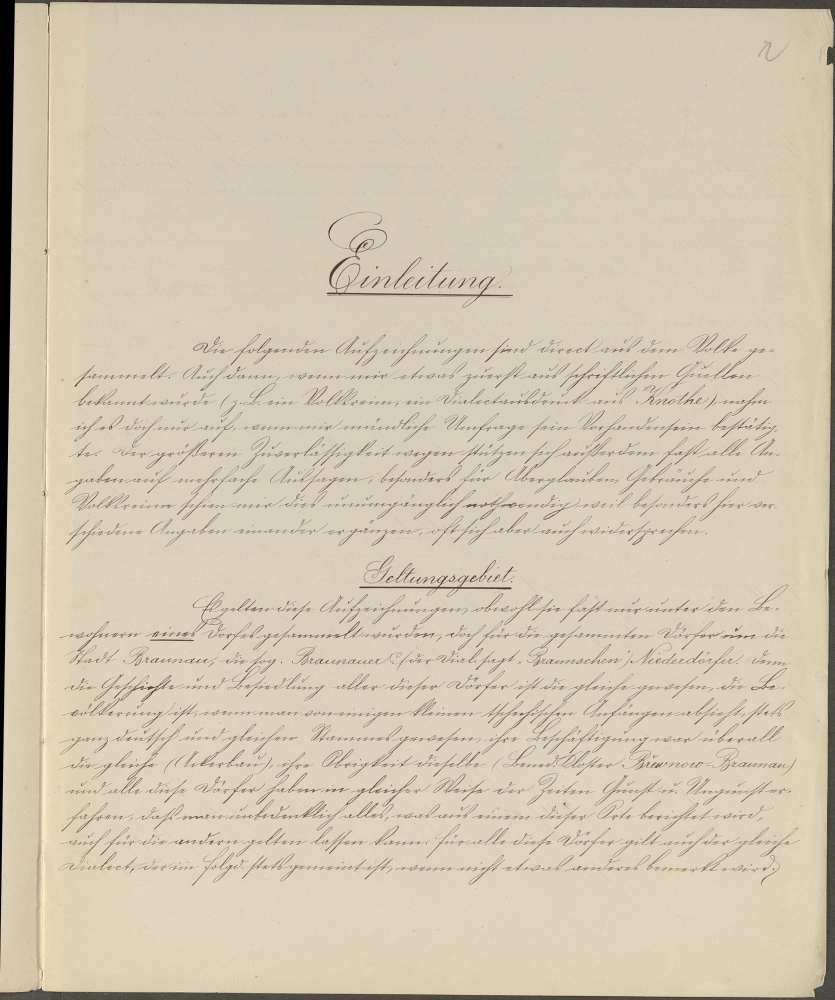 2
Einleitung.
Die folgenden Aufzeichnungen sind direct aus dem Volke ge-
sammelt. Auch dann, wenn mir etwas zuerst aus schriftlichen Quellen
bekannt wurde (z. B. ein Volksreim, ein Dialectausdruck aus Knothe) nahm
ich es doch nur auf, wenn mir mündliche Umfrage sein Vorhandensein bestätig-
te. Der größeren Zuverlässigkeit wegen stützen sich außerdem fast alle An-
gaben auf mehrfache Aussagen, besonders für Aberglauben, Gebräuche und
Volksreime schien mir dies unumgänglich nothwendig weil besonders hier ver-
schiedene Angaben einander ergänzen, oft sich aber auch widersprechen.
Geltungsgebiet.
Es gelten diese Aufzeichnungen, obwohl sie fast nur unter den Be-
wohnern eines Dorfes gesammelt wurden, doch für die gesammten Dörfer um die
Stadt Braunau, die sog. Braunauer (der Dial. sagt „Braunschen“) Niederdörfer. Denn
die Geschichte und Besiedlung aller dieser Dörfer ist die gleiche gewesen, die Be-
völkerung ist, wenn man von einigen kleinen tschechischen Anfängen absieht, stets
ganz deutsch und gleichen Stammes gewesen, ihre Beschäftigung war überall
die gleiche (Ackerbau), ihre Obrigkeit dieselbe (Bened. Kloster Břewnow-Braunau)
und alle diese Dörfer haben in gleicher Weise der Zeiten Gunst u. Ungunst er-
fahren, daß man unbedenklich alles, was aus einem dieser Orte berichtet wird,
auch für die andern gelten lassen kann. Für alle diese Dörfer gilt auch der gleiche
Dialect, der im folgd. stets gemeint ist, wenn nicht etwas anderes bemerkt wird.